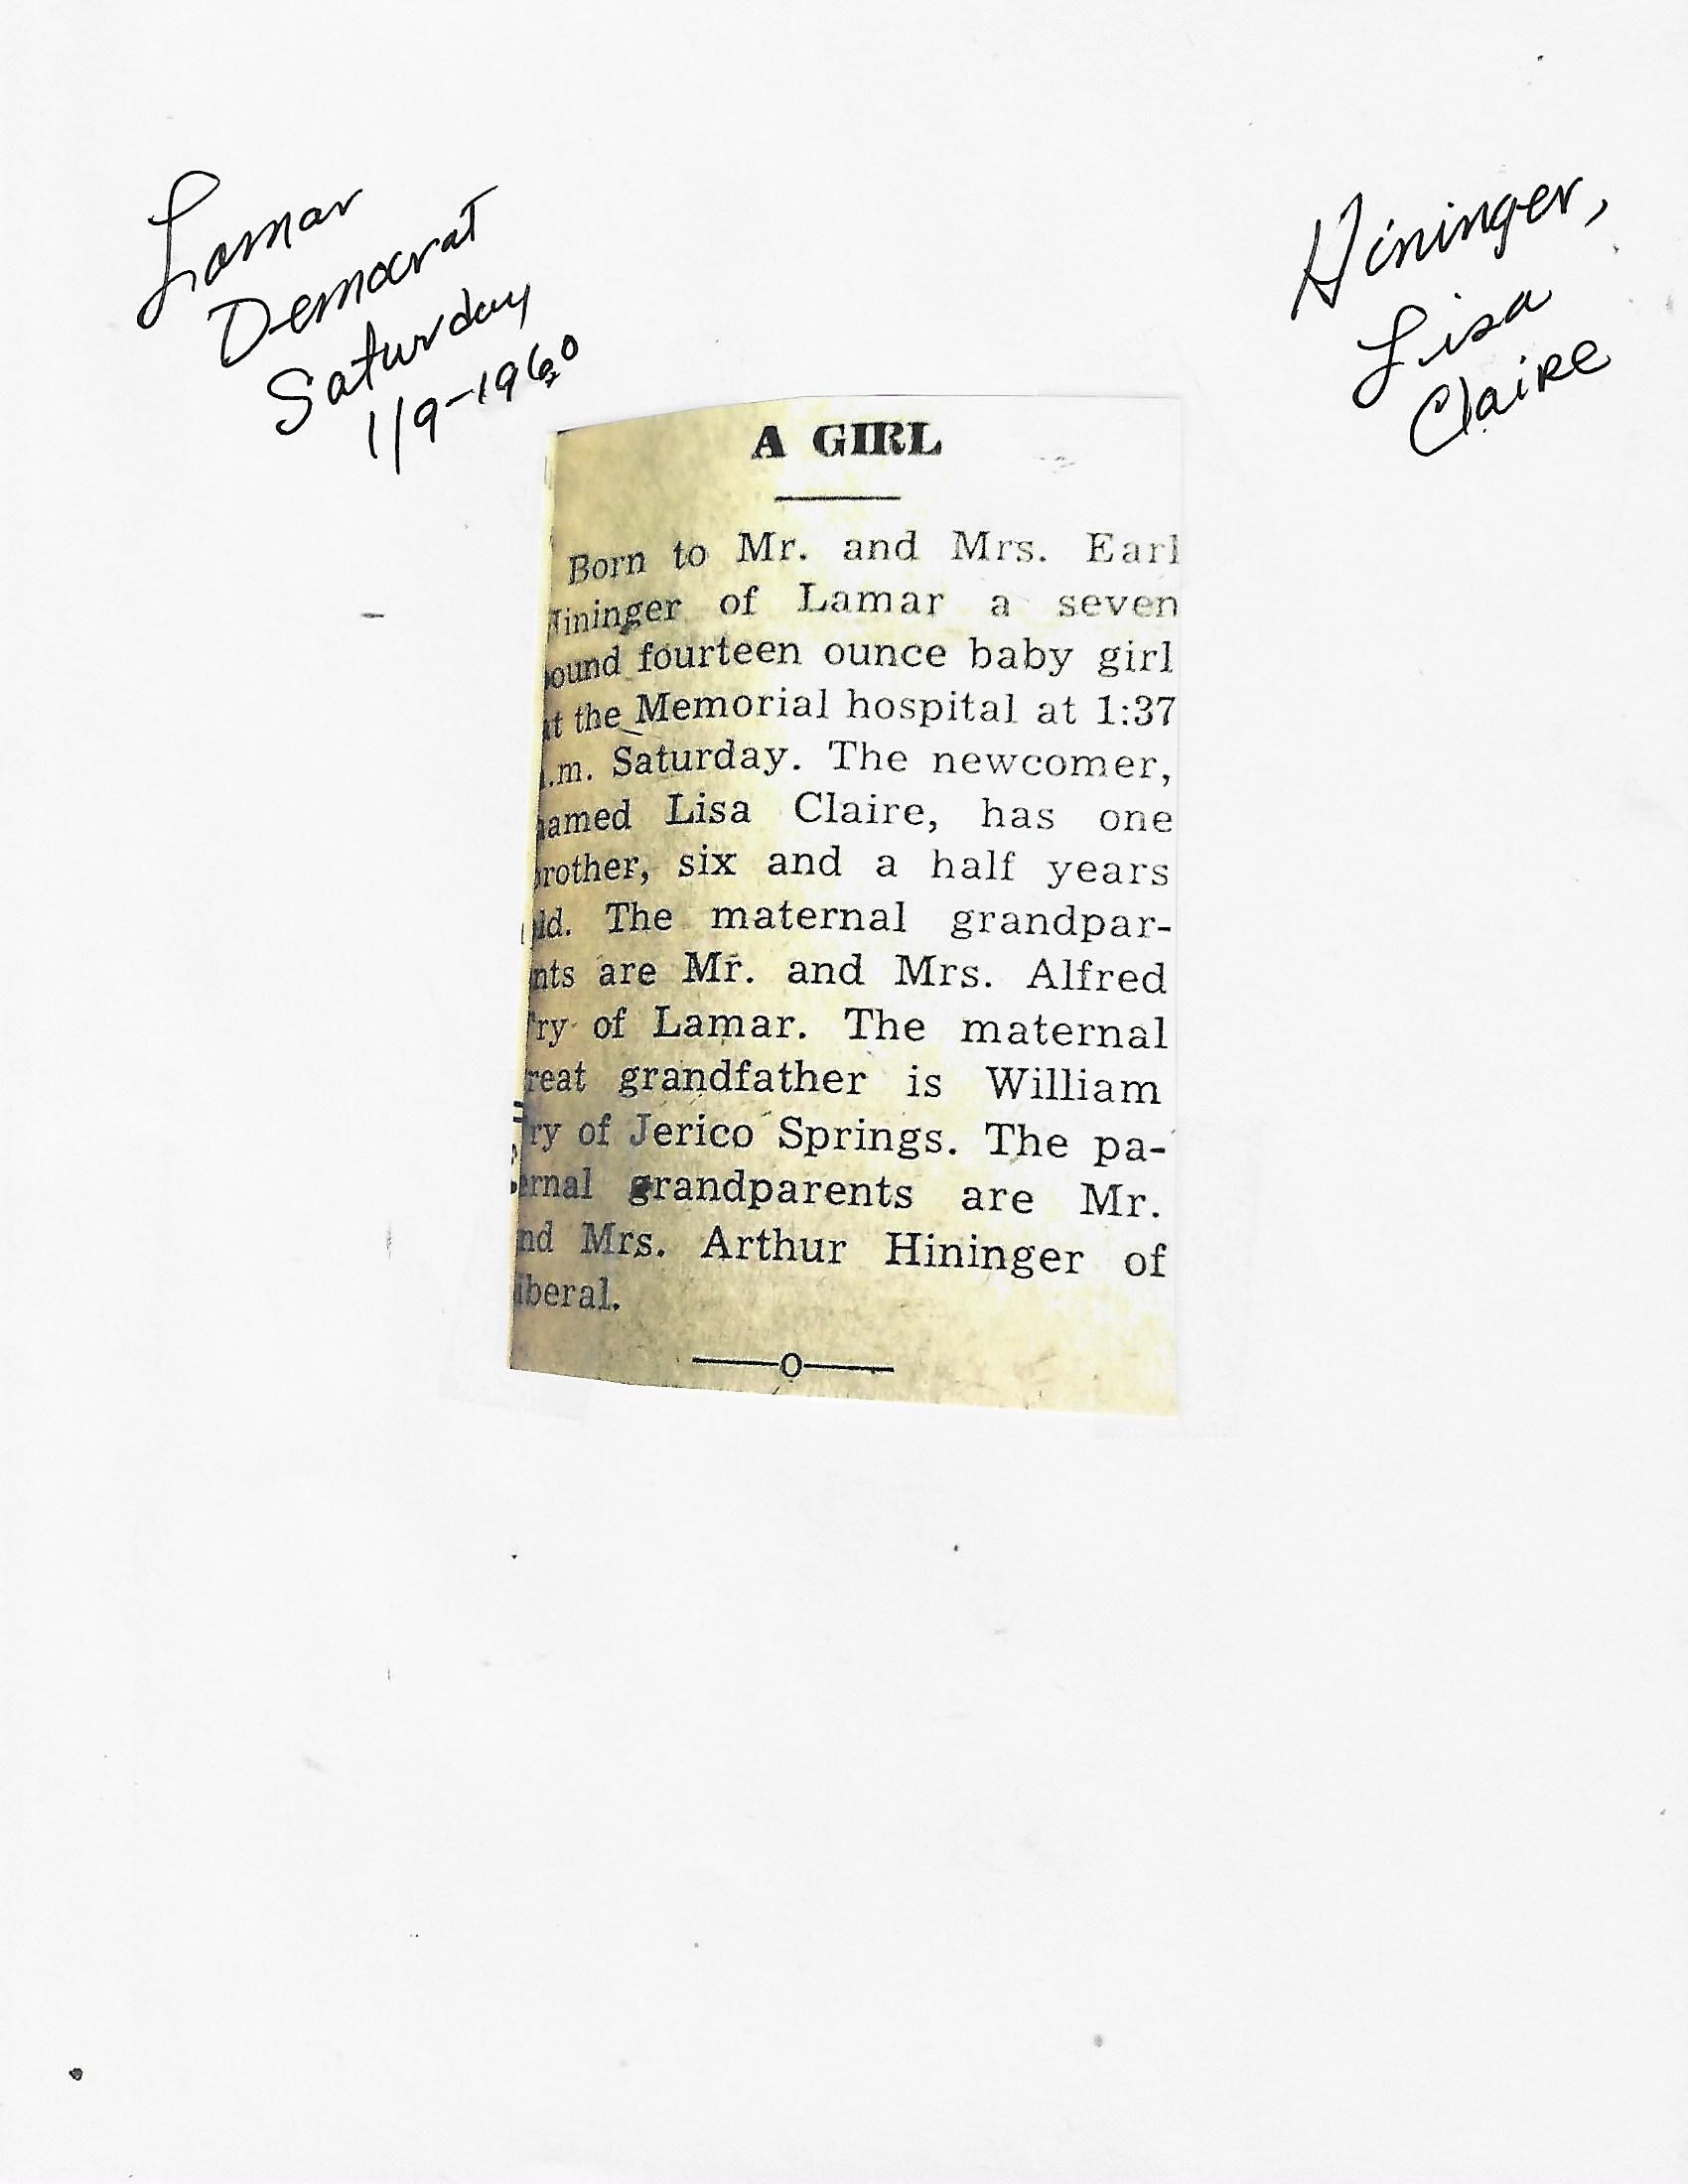 Lamar
Democrat
Saturday
1/9-1960
Hininger,
Lisa
Claire
A GIRL
Born to Mr. and Mrs. Earl
Hininger of Lamar a seven
ound fourteen ounce baby girl
at the Memorial hospital at 1:37
.m. Saturday. The newcomer,
named Lisa Claire, has one
brother, six and a half years
old. The maternal grandpar-
nts are Mr. and Mrs. Alfred
ry of Lamar. The maternal
reat grandfather is William
ry of Jerico Springs. The pa-
ernal grandparents are Mr.
nd Mrs. Arthur Hininger of
iberal.